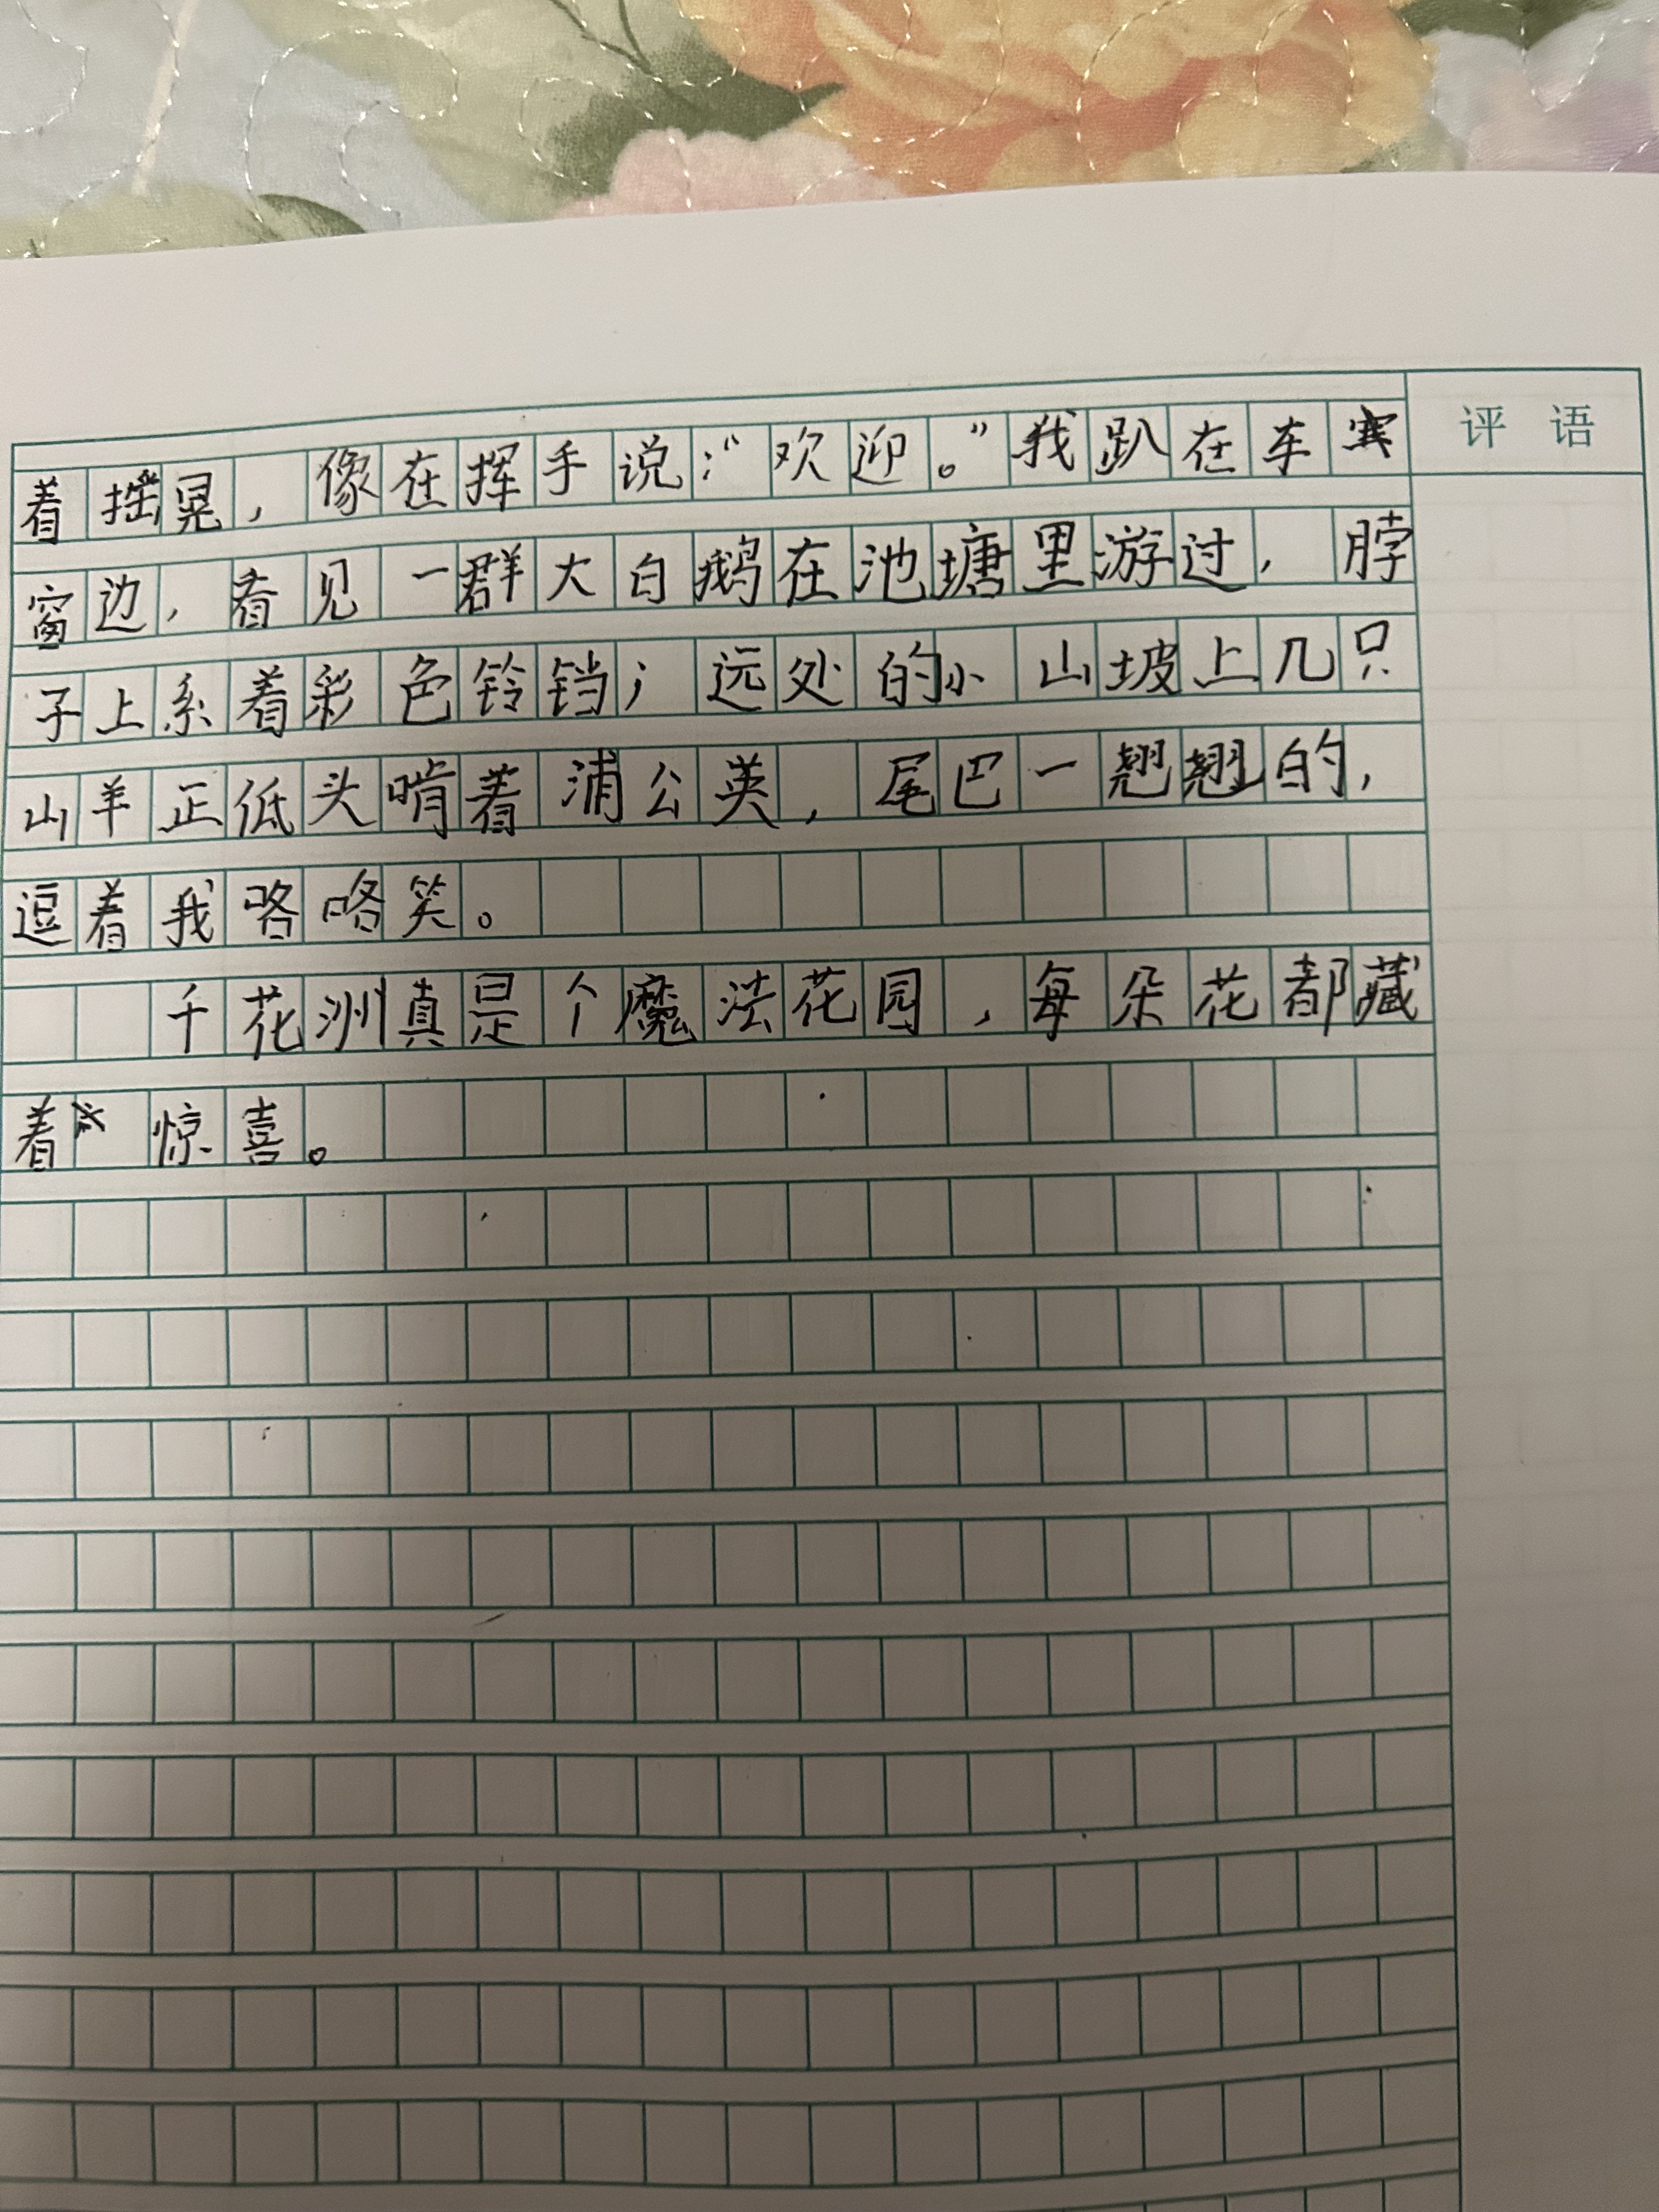 评 语
着摇晃，像在挥手说：“欢迎。”我趴在车
窗边，看见一群大白鹅在池塘里游过，脖
子上系着彩色铃铛；远处的小山坡上几只
山羊正低头啃着浦公英，尾巴一翘翘的，
逗着我咯咯笑。
千花洲真是个魔法花园，每朵花都藏
着惊喜。